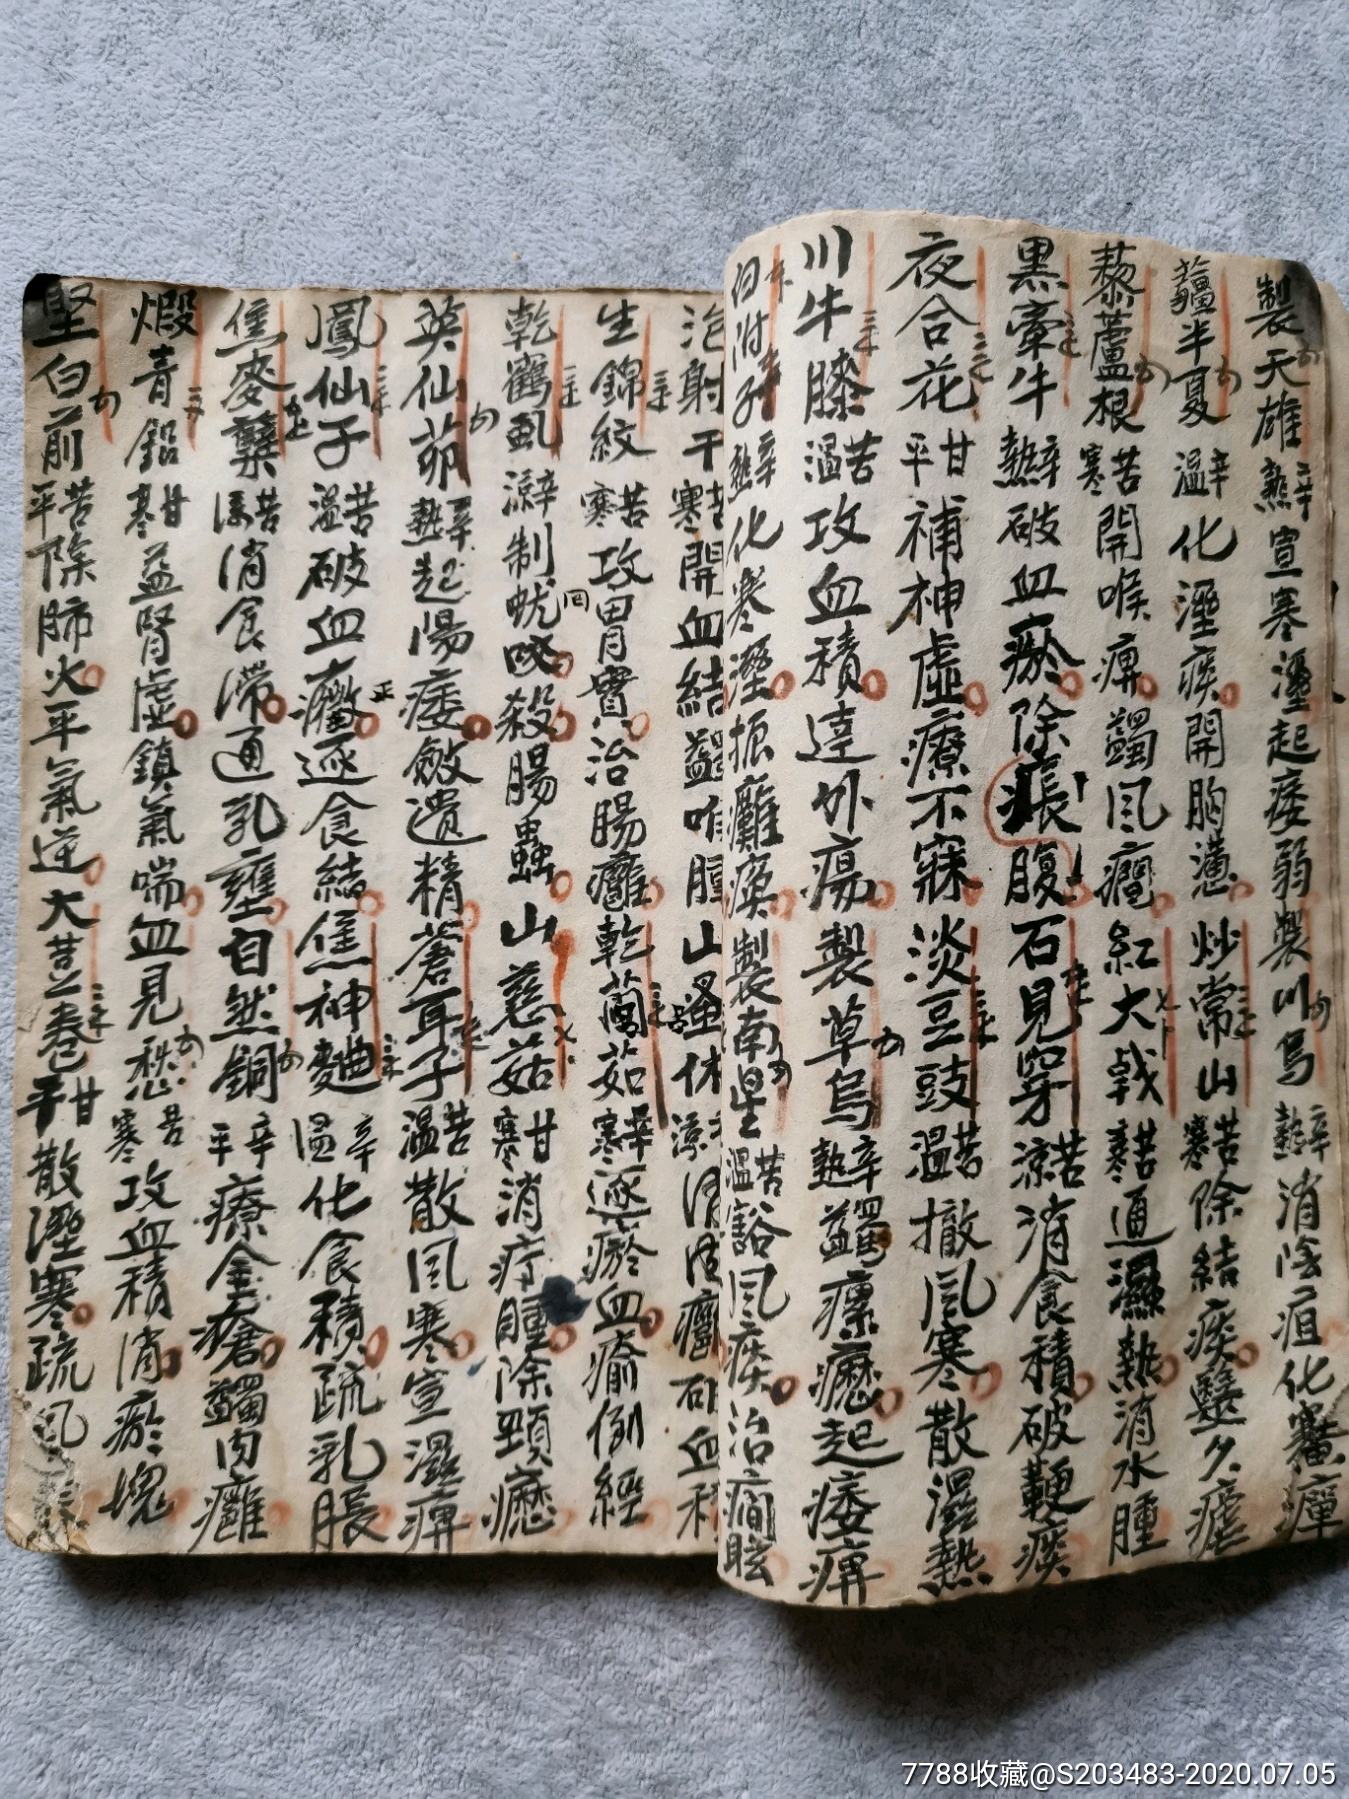 製天雄辛熱宣寒溼起痿弱製川烏辛熱消陰疽化寒瘴
薑半夏辛溫化溼痰開胸懣炒常山苦寒除結痰毉久瘧
藜蘆根苦寒開喉痹蠲風癇紅大戟苦寒通濕熱消水腫
黑牽牛辛熱破血瘀除腹石見穿苦涼消食積破鞕痰
夜合花甘平補神虛療不寐淡豆豉苦溫撤風寒散濕熱
川牛膝苦溫攻血積達外瘍製草烏辛熱蠲瘰癧起痿痹
白附子辛熱化寒溼振癱瘓製南星苦溫豁風痰治癇眩
射干苦寒開血結蠲喉腫山蚤休涼消
生錦紋苦寒攻胃實治腸癰乾藘茹辛寒逐瘀血瘉倒經
乾鶴虱辛涼制蚘咬殺腸蟲山慈菇甘寒消疔腫除頸癧
英仙茆辛熱起陽痿斂遺精蒼耳子苦溫散風寒宣濕痹
鳳仙子苦溫破血癥逐食結焦神麯辛溫化食積疏乳脹
焦麥櫱苦消食滯通乳壅自然銅辛平療金瘡蠲肉癰
煅青鉛甘寒益腎虛鎮氣喘血見愁苦寒攻血積消瘀塊
堅白前苦平除肺火平氣逆大荳卷甘平散溼寒疏風
7788收藏@S203483-2020.07.05